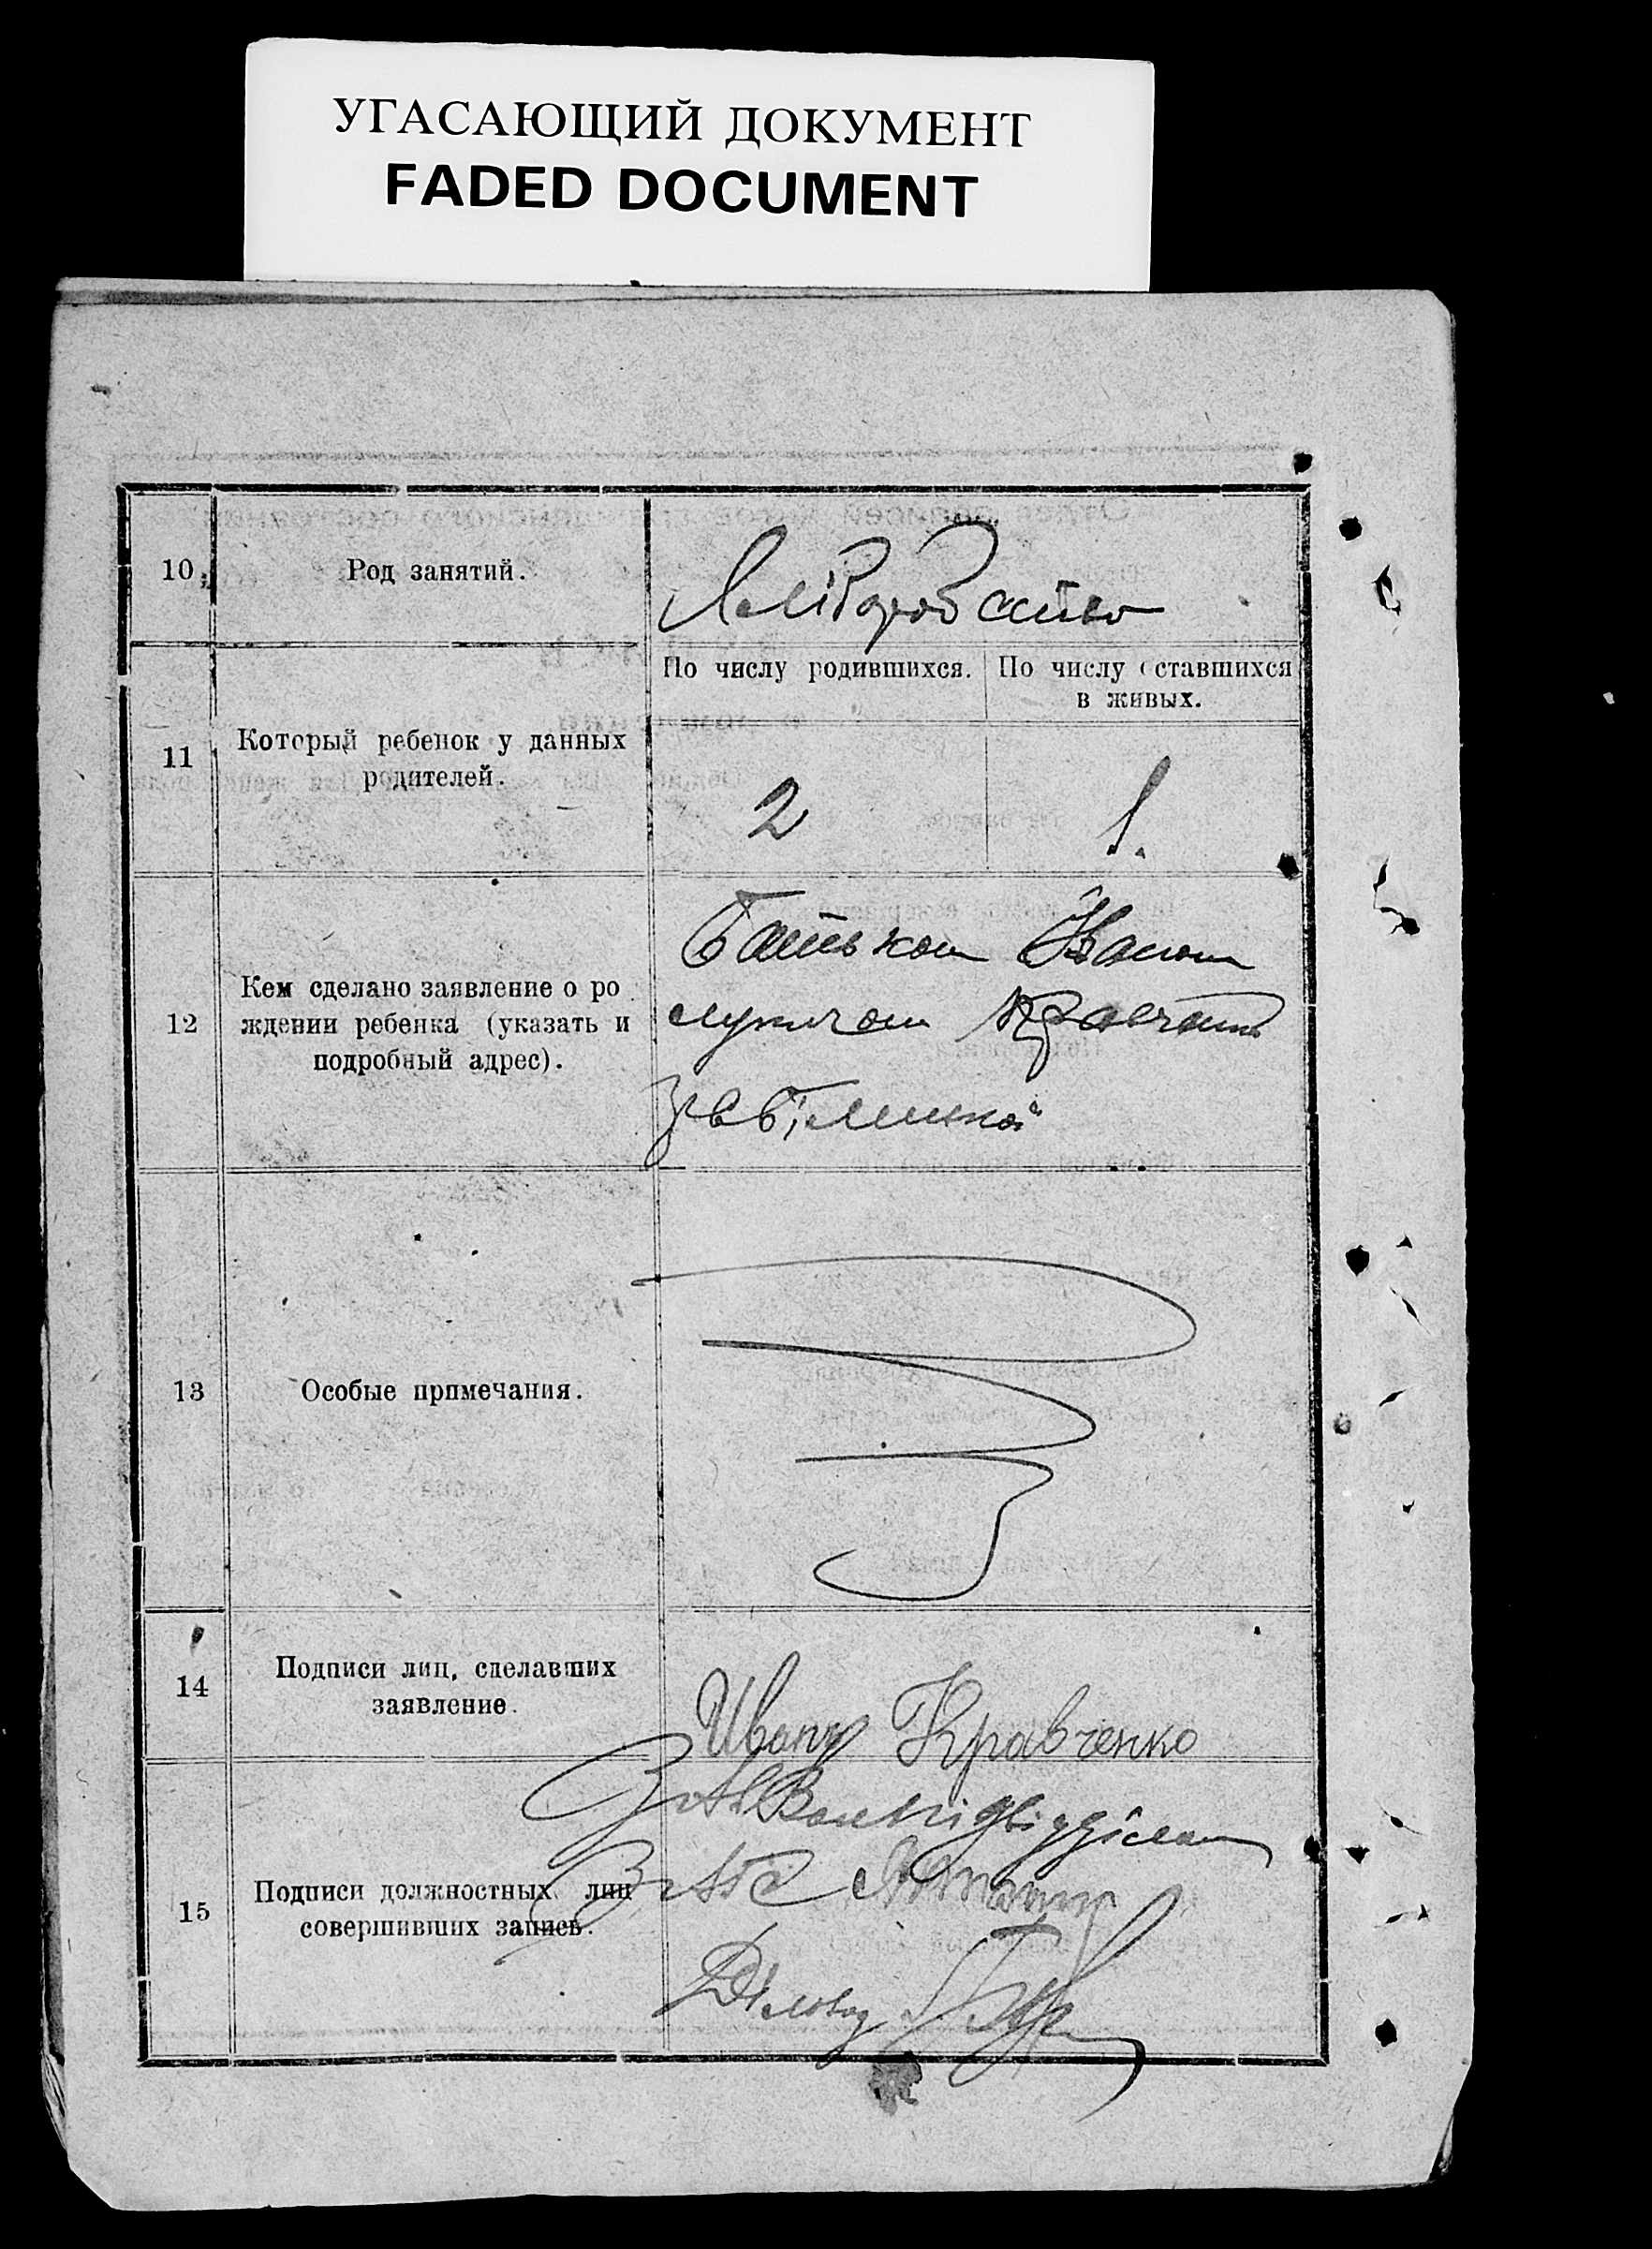 УГАСАЮЩИЙ ДОКУМЕНТ
FADED DOCUMENT
10. Род занятий.
По числу родившихся. По числу оставшихся
в живых.
11 Который ребенок у данных
родителей.
2 1.
Батьком Іваном
12 Кем сделано заявление о ро
ждении ребенка (указать и
подробный адрес).
лукичом
13 Особые примечания.
14 Подписи лиц, сделавших
заявление.
Иван Кравченко
15 Подписи должностных лиц
совершивших запись.
Діловод